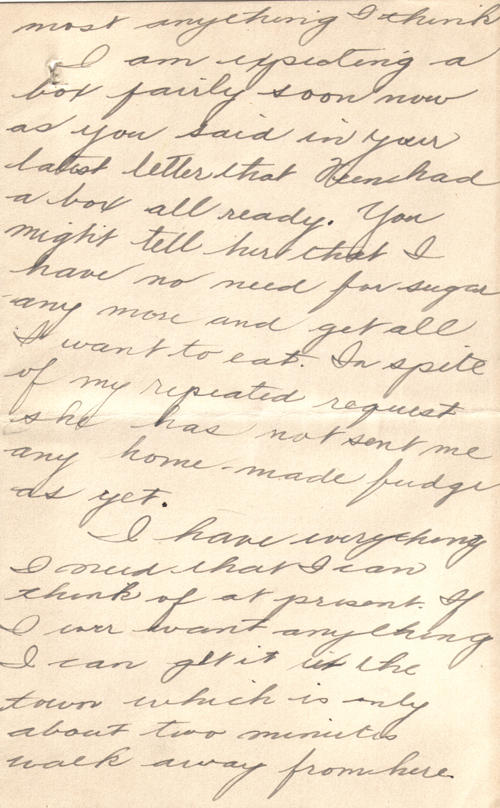 most anything I think
I am expecting a
box fairly soon now
as you said in your
latest letter that had
a box all ready. You
might tell her that I
have no need for sugar
any more and get all
I want to eat. In spite
of my repeated request
she has not sent me
any home-made fudge
as yet.
I have everything
I need that I can
think of at present. If
I ever want anything
I can get it in the
town which is only
about two minutes
walk away from here.